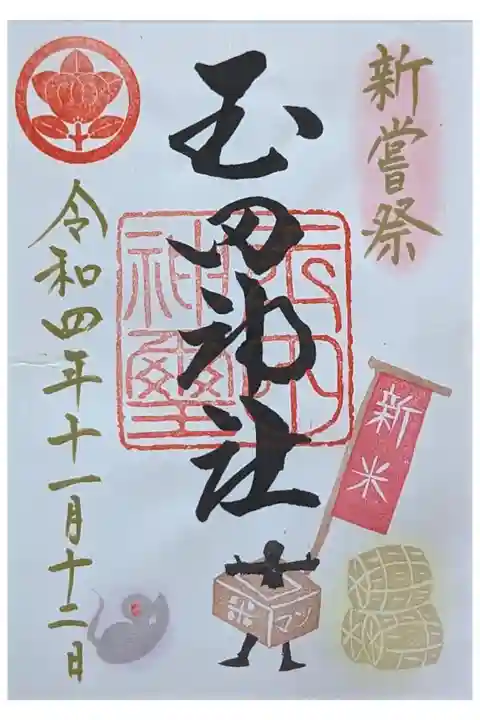 新嘗祭
玉田神社
神璽
令和四年十一月十二日
新米
マン